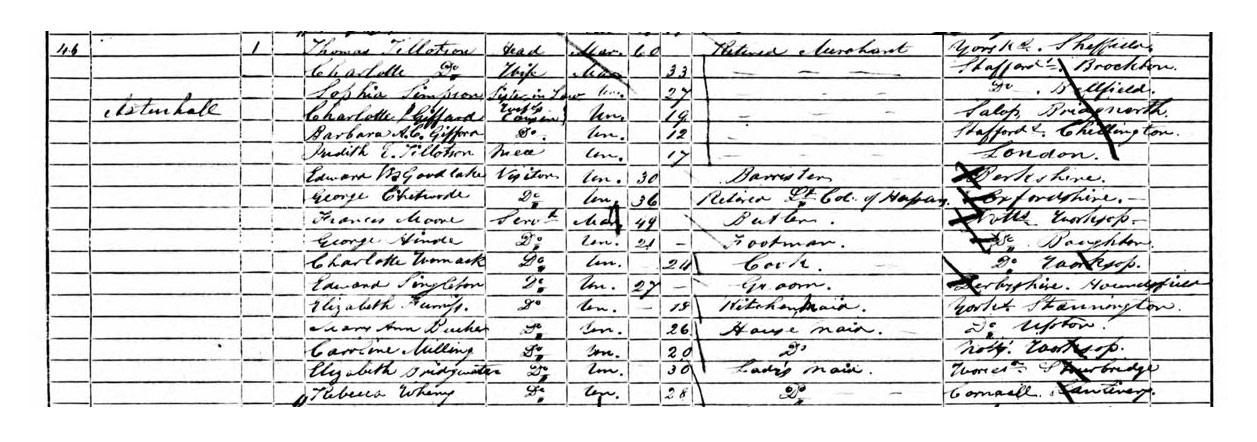 46 1 Thomas Tillotson Head Mar. 60 Retired Merchant Yorks. Sheffield.
Charlotte Do Wife Mar. 33 Staffords. Brockton.
Sophia Simpson Sister in Law Un. 27 Do. Bellfield.
Astenhall Charlotte Giffard Wife's Cousin Un. 19 Salop, Bridgnorth
Barbara A.C. Giffard Do. Un. 12 Staffords. Chillington.
Judith E. Tillotson Niece Un. 17 London.
Edward Goodlake Visitor Un. 30 Barrister Berkshire.
George Chetwode Do Un. 36 Retired Lt. Col. of Hussars Oxfordshire.
Frances Moore Servt Mar 49 Butler. Notts Worksop.
George Hinde Do Un. 21 Footman. Do Boughton
Charlotte Womack Do Un. 24 Cook. Do Worksop.
Edward Singleton Do Un. 27 Groom. Derbyshire.
Elizabeth Furniss. Do Un. 18 Kitchen Maid. Yorks. Stannington
Mary Ann Do Un. 26 House Maid. Do Upton.
Caroline Milling Do. Un. 20 Do Notts. Worksop.
Elizabeth Bridgwater Do Un. 30 Lady's Maid. Worcs. Stourbridge
Rebecca Do Un. 28 Do Cornwall.